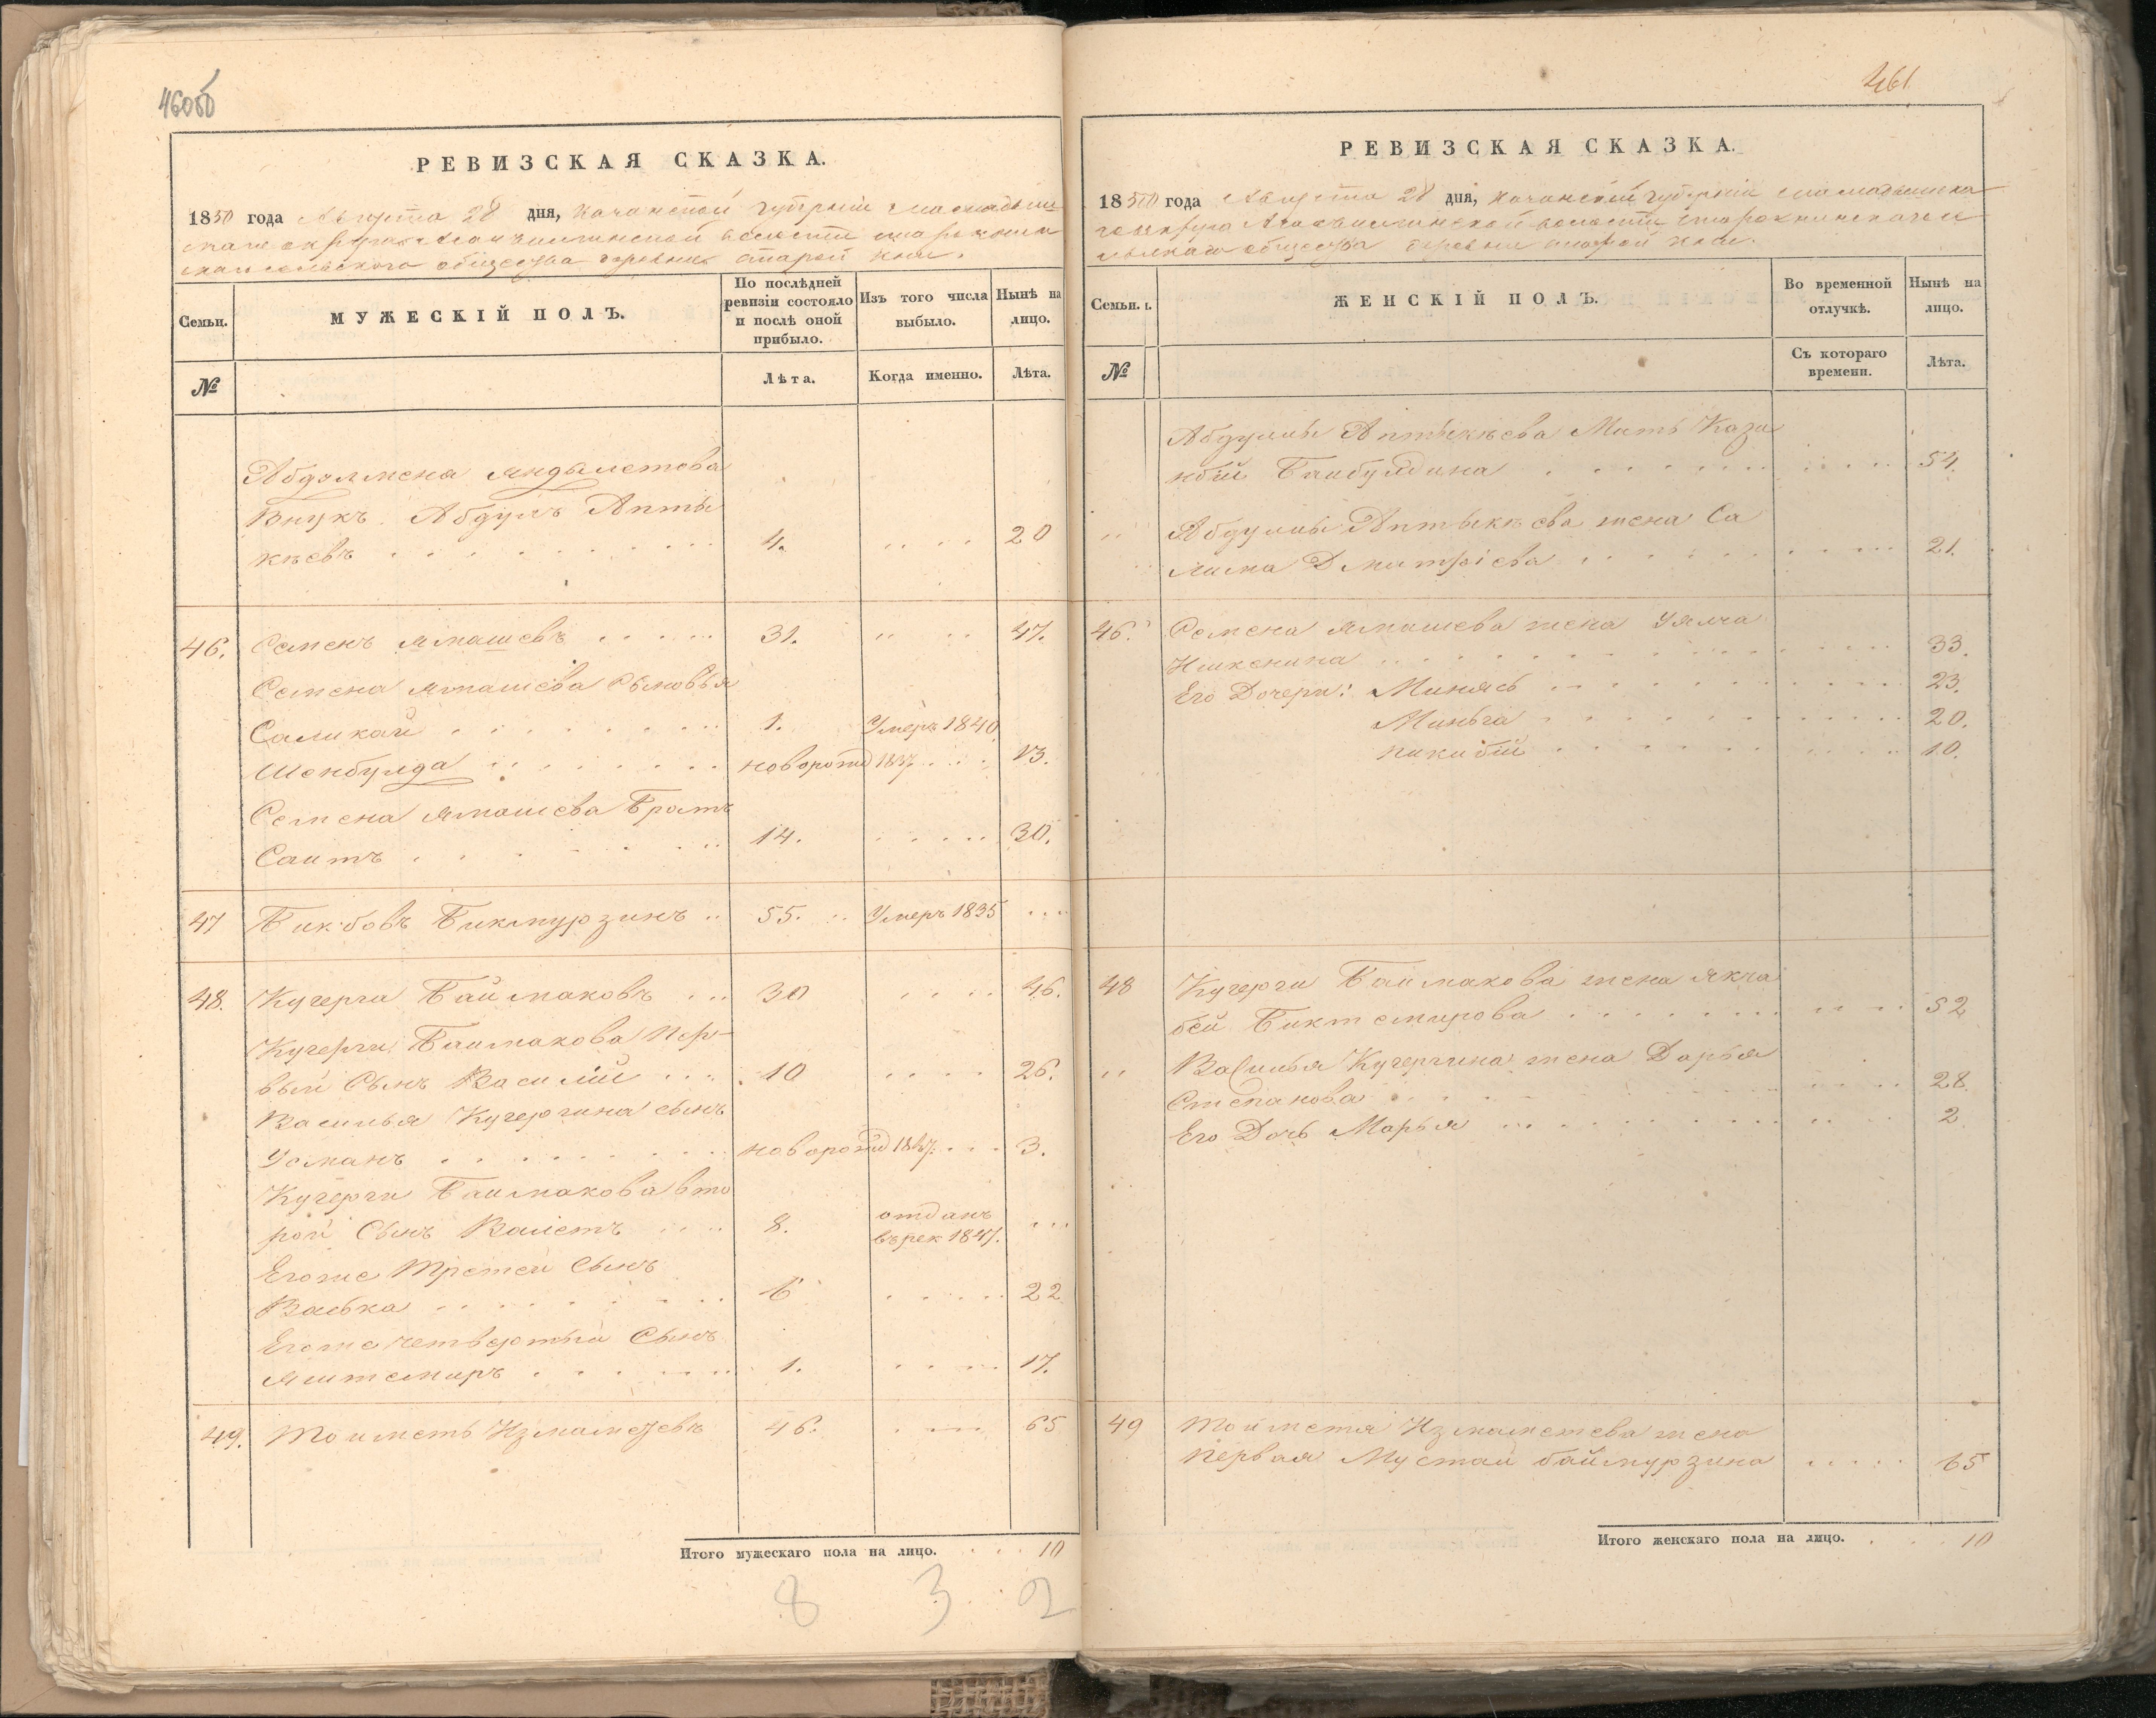 460об
РЕВИЗСКАЯ СКАЗКА.
1850 года Августа 28 дня, Казанской губернии Мамадыш
скаго округа волости старокни
скаго сельскаго общества деревни старой кни.
Семьи.
МУЖЕСКІЙ ПОЛЪ.
По послѣдней
ревизіи состояло
и послѣ оной
прибыло.
Изъ того числа
выбыло.
Нынѣ на
лицо.
№
Лѣта.
Когда именно.
Лѣта.
Абдолмена Яндылетова
Внукъ Абдулъ Апты
кѣевъ 4. 20
46. Семенъ Ямашевъ 31. 47.
Семена Ямашева Сыновья
Саликай 1. Умеръ 1840
Шенбулда новорожд 1837. 13.
Семена Ямашева Братъ
Саитъ 14. 30.
47 Бикбовъ Бикмурзинъ 55. Умеръ 1835
48. Кучерги Баймаковъ 30 46.
Кучерги Баимакова пер
вый Сынъ Василій 10 26.
Василья Кучергина сынъ
Усманъ новорожд 1847. 3.
Кучерги Баимакова вто
рой Сынъ Валетъ 8. отданъ
въ рек 1847.
Егоже Третей Сынъ
Васька 6 22
Егоже четвертый Сынъ
Яштемиръ 1. 17.
49. Тойметь Измаметевъ 46. 65
Итого мужескаго пола на лицо. 10
8 3 2
461
РЕВИЗСКАЯ СКАЗКА.
1850 года Августа 28 дня, Казанской губерніи Мамадышска
го округа волости старокнинскаго се
льскаго общества деревни старой кни.
Семьи.
ЖЕНСКІЙ ПОЛЪ.
Во временной
отлучкѣ.
Нынѣ на
лицо.
№
Съ котораго
времени.
Лѣта.
Абдулы Аптыкѣева Мать Кази
нбій Баибулдина 54
Абдулы Аптыкѣева жена Са
лима Дмитріева 21.
46. Семена Ямашева жена Уялча
Ишкенина 33.
Его Дочери: Минясь 23.
Миньга 20.
пикибій 10.
48 Кучерги Баимакова жена Якча
бей Биктемирова 52
Василья Кучергина жена Дарья
Степанова 28.
Его Дочь Марья 2
49 Тойметя Измаметева жена
первая Мустай баймурзина 65
Итого женскаго пола на лицо. 10